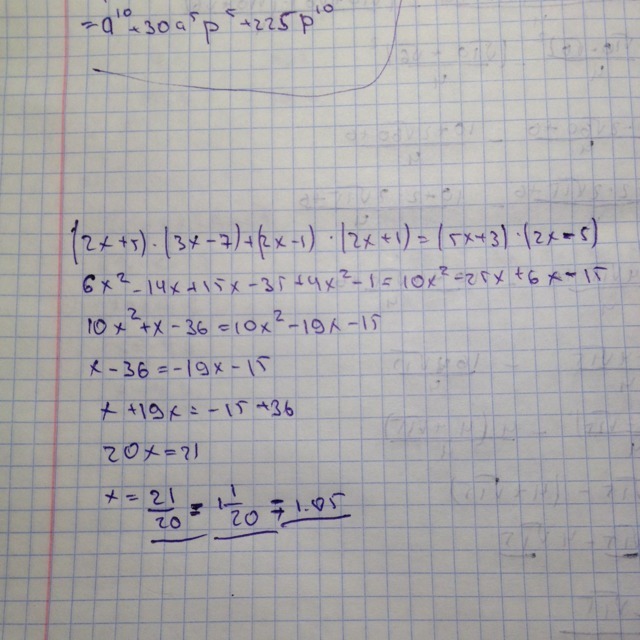 =a¹⁰+30a⁵p⁵+225p¹⁰
(2x+5)·(3x-7)+(2x-1)·(2x+1)=(5x+3)·(2x-5)
6x²-14x+15x-35+4x²-1=10x²-25x+6x-15
10x²+x-36=10x²-19x-15
x-36=-19x-15
x+19x=-15+36
20x=21
x=21/20=1 1/20=1.05